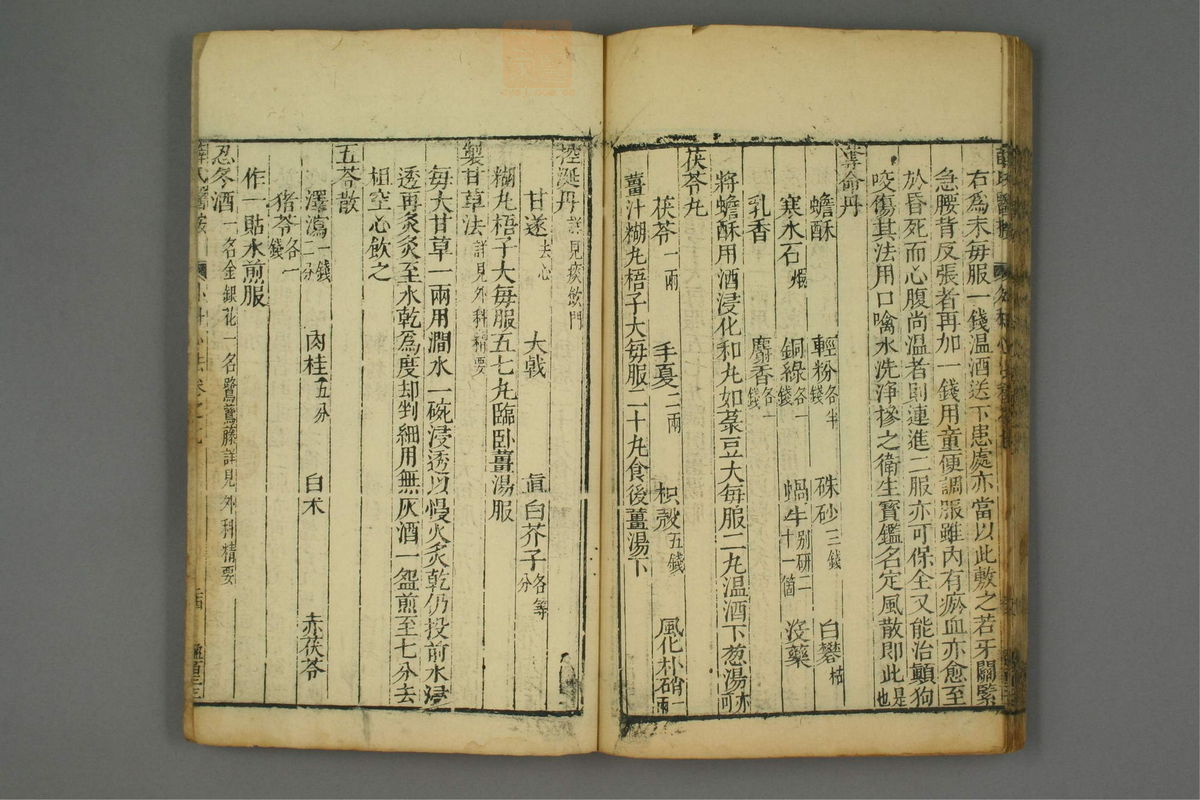 右為末每服一錢温酒送下患處亦當以此敷之若牙關緊
急腰背反張者再加一錢用童便調服雖內有瘀血亦愈至
於昏死而心腹尚温者則連進二服亦可保全又能治顛狗
咬傷其法用口噙水洗淨摻之衛生寳鑑名定風散即此是也
奪命丹
蟾酥 輕粉各半錢 硃砂三錢 白礬枯
寒水石煅 銅綠各一錢 蝸牛別研二十一箇 沒藥
乳香 麝香各一錢
將蟾酥用酒浸化和丸如菉豆大每服二丸温酒下葱湯亦可
茯苓丸
茯苓一兩 半夏二兩 枳殼五錢 風化朴硝一兩
薑汁糊丸梧子大每服二十丸食後薑湯下
控涎丹詳見痰飲門
甘遂去心 大戟 眞白芥子各等分
糊丸梧子大每服五七丸臨卧薑湯服
製甘草法詳見外科精要
每大甘草一兩用澗水一碗浸透以慢火炙乾仍投前水浸
透再炙炙至水乾為度却剉細用無灰酒一盌煎至七分去
柤空心飲之
五苓散
澤瀉一錢二分 肉桂五分 白术 赤茯苓
猪苓各一錢
作一貼水煎服
忍冬酒一名金銀花一名鷺鷥藤詳見外科精要
薛氏醫按